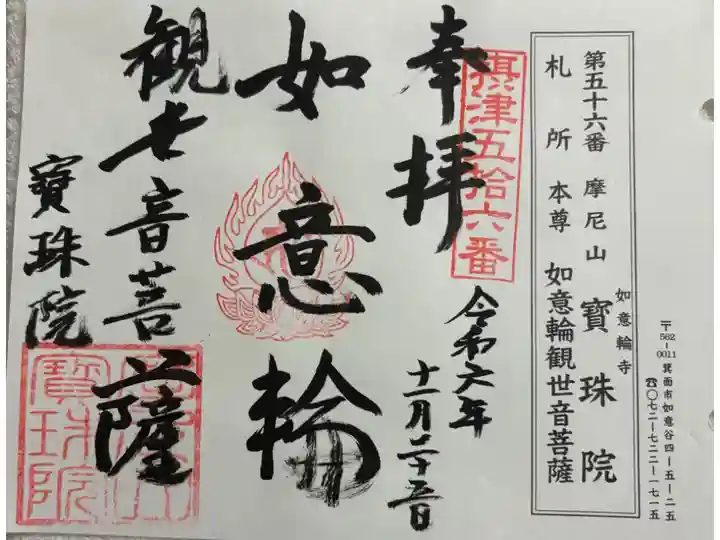 〒562-0011 箕面市如意谷四ー五ー二五
☎〇七二ー七二二ー一七一五
如意輪寺
第五十六番 摩尼山 寳珠院
札所本尊 如意輪観世音菩薩
摂津五拾六番
奉拝
令和六年
十一月二十五日
如意輪
観世音菩薩
寳珠院